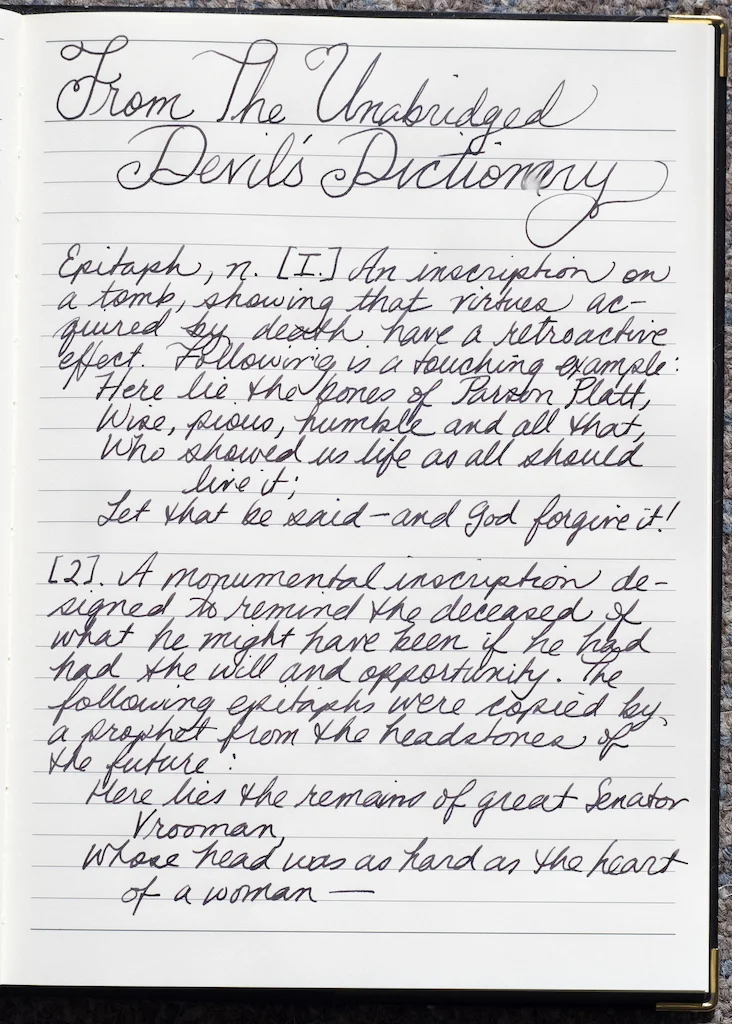 From The Unabridged
Devil's Dictionary
Epitaph, n. [I.] An inscription on
a tomb, showing that virtues ac-
quired by death have a retroactive
effect. Following is a touching example:
Here lie the bones of Parson Platt,
Wise, pious, humble and all that,
Who showed us life as all should
live it;
Let that be said—and God forgive it!
[2]. A monumental inscription de-
signed to remind the deceased of
what he might have been if he had
had the will and opportunity. The
following epitaphs were copied by
a prophet from the headstones of
the future:
Here lies the remains of great Senator
Vrooman,
Whose head was as hard as the heart
of a woman—